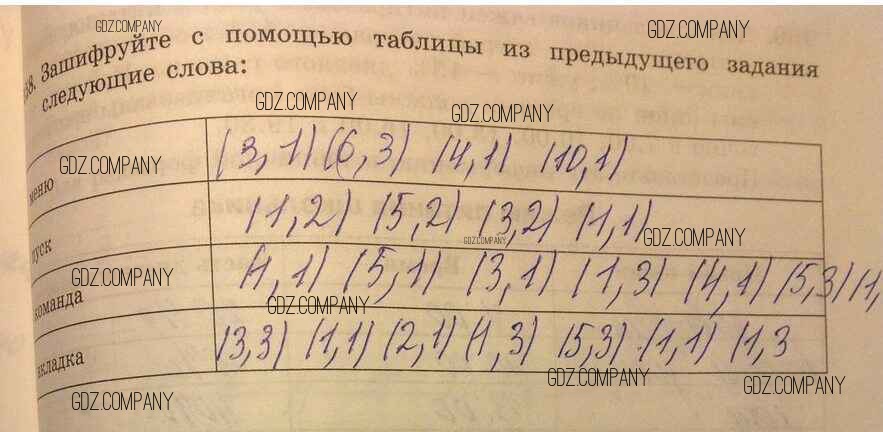 GDZ.COMPANY GDZ.COMPANY
38. Зашифруйте с помощью таблицы из предыдущего задания
следующие слова:
GDZ.COMPANY GDZ.COMPANY
меню (3,1) (6,3) (4,1) (10,1)
GDZ.COMPANY
пуск (1,2) (5,2) (3,2) (1,1)
GDZ.COMPANY GDZ.COMPANY
команда (1,1) (5,1) (3,1) (1,3) (4,1) (5,3) (1,
GDZ.COMPANY GDZ.COMPANY
вкладка (3,3) (1,1) (2,1) (1,3) (5,3) (1,1) (1,3
GDZ.COMPANY GDZ.COMPANY
GDZ.COMPANY